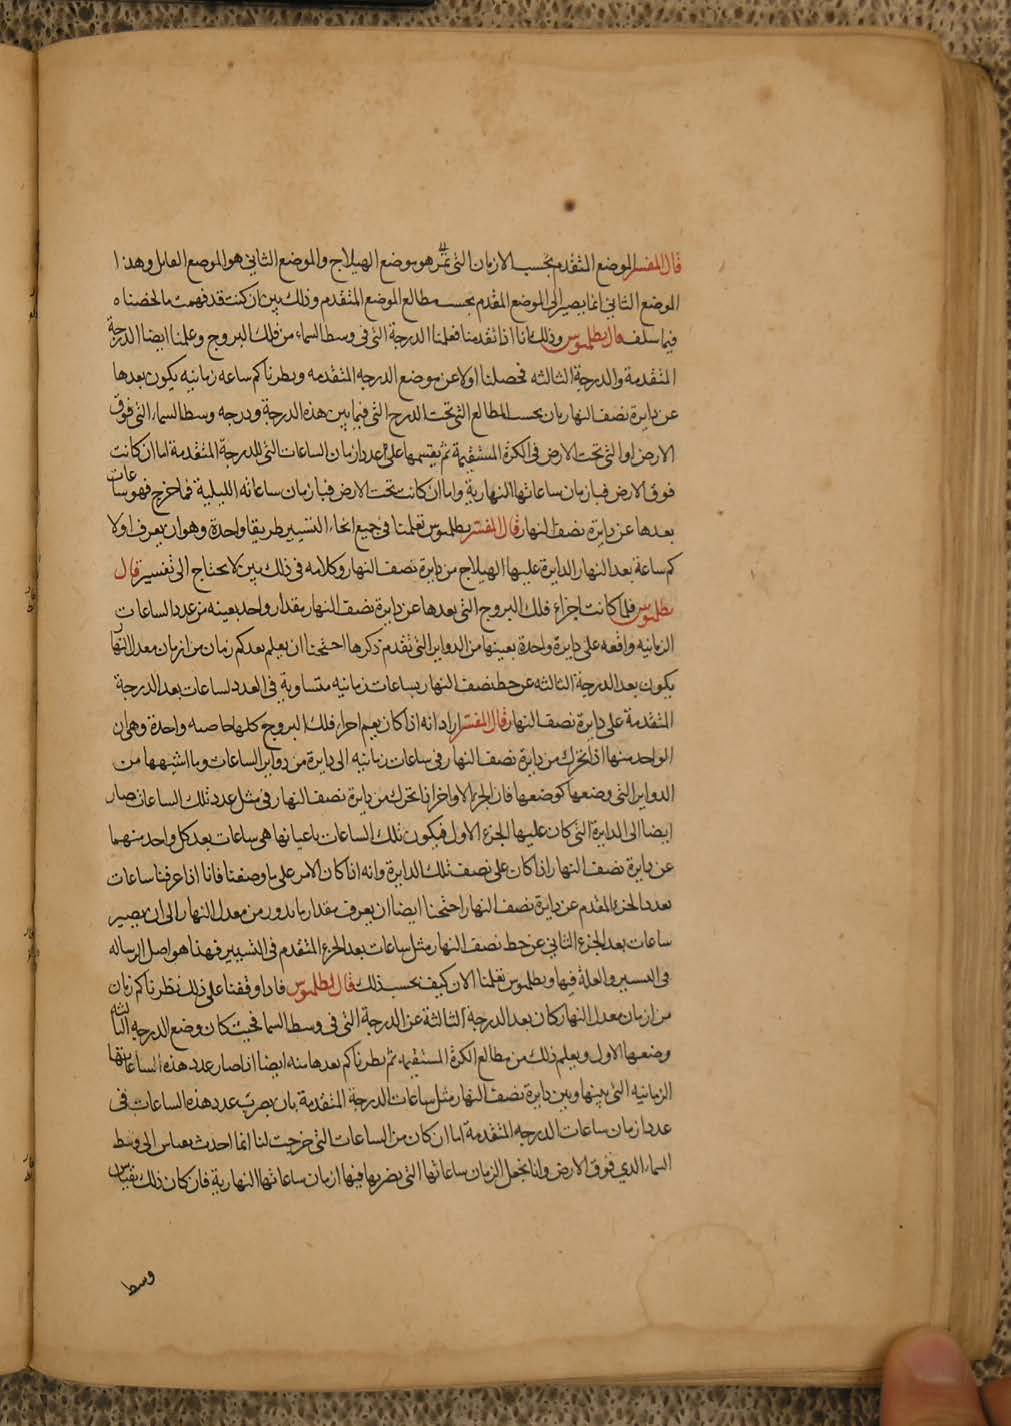 قال المفسر الموضع المتقدم بحسب الازمان التى تمر هو موضع الهيلاج والموضع الثانى هو الموضع القابل وهذا
الموضع الثانى انما يصير الى الموضع المقدم بحسب مطالع الموضع المتقدم وذلك بين ان كنت قد فهمت ما لخصناه
فيما سلف قال بطلميوس وذلك انا اذا تقدمنا فعلمنا الدرجة التى فى وسط السماء من فلك البروج وعلمنا ايضا الدرجة
المتقدمة والدرجة الثالثه فحصلنا اولا عن موضع الدرجه المتقدمه ونظرنا كم ساعه زمانيه يكون بعدها
عن دايرة نصف النهار بان بحسب المطالع التى تحت الدرج التى فيما بين هذه الدرجة ودرجه وسط السماء التى فوق
الارض او التى تحت الارض فى الكرة المستقيمة ثم يقسمها على عدد ازمان الساعات التى للدرجة المتقدمة اما ان كانت
فوق الارض فبازمان ساعاتها النهارية واما ان كانت تحت الارض فبازمان ساعاته الليلية فما خرج فهو ساعات
بعدها عن دايرة نصف النهار قال المفسر بطلميوس تعلمنا فى جميع انحاء التسيير طريقا واحدة وهو ان يعرف اولا
كم ساعة بعد النهار الدايرة عليها الهيلاج من دايرة نصف النهار وكلامه فى ذلك بين لا يحتاج الى تفسير قال
بطلميوس فلما كانت اجزاء فلك البروج التى بعدها عن دايرة نصف النهار بمقدار واحد بعينه من عدد الساعات
الزمانيه واقعه على دايرة واحدة بعينها من الدواير التى تقدم ذكرها احتجنا ان يعلم بعد كم زمان من ازمان معدل النهار
يكون بعد الدرجة الثالثه عن خط نصف النهار بساعات زمانيه متساوية فى العدد لساعات بعد الدرجة
المتقدمة على دايرة نصف النهار قال المفسر اراد انه اذا كان يعم اجزاء فلك البروج كلها خاصه واحدة وهى ان
الواحد منها اذا تحرك من دايرة نصف النهار فى ساعات زمانيه الى دايرة من دواير الساعات وما اشبهها من
الدواير التى وضعها كوضعها فان الجزء الاخر اذا تحرك من دايرة نصف النهار فى مثل عدد تلك الساعات صار
ايضا الى الدايرة التى كان عليها الجزء الاول فيكون تلك الساعات باعيانها هى ساعات بعد كل واحد منهما
عن دايرة نصف النهار اذا كان على نصف تلك الدايرة وانه اذا كان الامر على ما وصفنا فانا اذا عرفنا ساعات
بعد الجزء المقدم عن دايرة نصف النهار احتجنا ايضا ان يعرف مقدار ما يدور من معدل النهار الى ان يصير
ساعات بعد الجزء الثانى عن خط نصف النهار مثل ساعات بعد الجزء المتقدم فى التسيير فهذا هو اصل الرساله
فى التسيير والعلة فيها وبطلميوس تعلمنا الان كيف نحسب ذلك قال بطلميوس فاذا وقفنا على ذلك نظرنا كم زمان
من ازمان معدل النهار كان بعد الدرجة الثالثة عن الدرجة التى فى وسط السما فحيث كان وضع الدرجه الثالثه
وضعها الاول ويعلم ذلك من مطالع الكرة المستقيمه ثم نظرنا كم بعدها منه ايضا اذا صار عدد هذه الساعات
الزمانيه التى بينها وبين دايرة نصف النهار مثل ساعات الدرجة المتقدمة بان يضرب عدد هذه الساعات فى
عدد ازمان ساعات الدرجه المتقدمة اما ان كان من الساعات التى خرجت لنا انما احدث بقياس الى وسط
السماء الذى فوق الارض وانا نجعل الزمان ساعاتها التى يضربها فيها ازمان ساعاتها النهارية فان كان ذلك بقياس
وسط